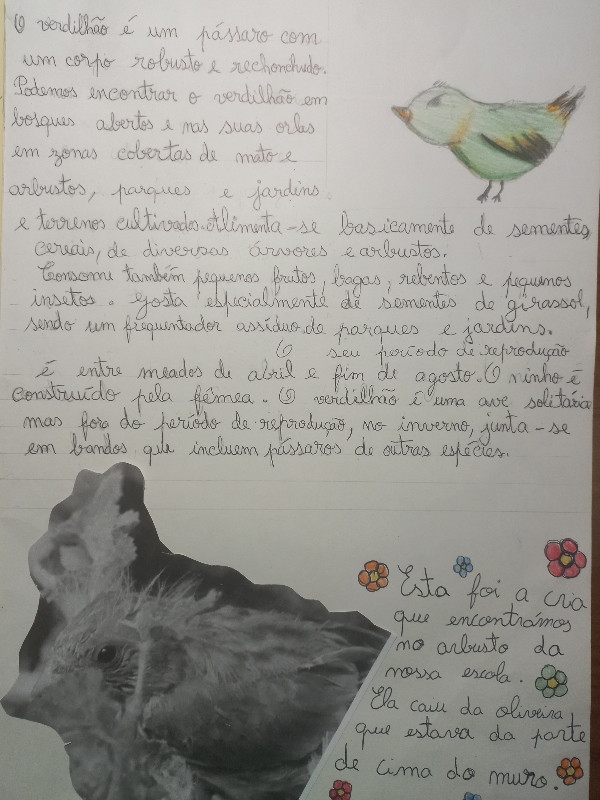 O verdilhão é um pássaro com
um corpo robusto e rechonchudo.
Podemos encontrar o verdilhão em
bosques abertos e nas suas orlas
em zonas cobertas de mato e
arbustos, parques e jardins
e terrenos cultivados. Alimenta-se basicamente de sementes,
cereais, de diversas árvores e arbustos.
Consome também pequenos frutos, bagas, rebentos e pequenos
insetos. Gosta especialmente de sementes de girassol,
sendo um frequentador assíduo de parques e jardins.
O seu período de reprodução
é entre meados de abril e fim de agosto. O ninho é
construído pela fêmea. O verdilhão é uma ave solitária
mas fora do período de reprodução, no inverno, junta-se
em bandos que incluem pássaros de outras espécies.
Esta foi a cria
que encontrámos
no arbusto da
nossa escola.
Ela caiu da oliveira
que estava da parte
de cima do muro.